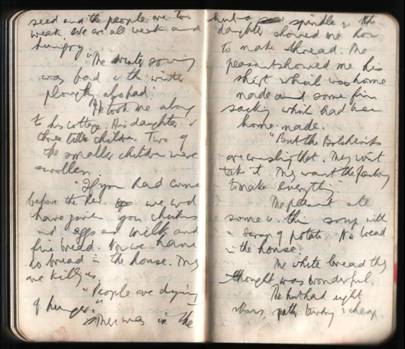 seed and the people are too
weak. We are all weak and
hungry.
"The winter sowing
was bad & the winter
plough of had
He took me along
to his cottage. His daughter &
three little children. Two of
the smaller children were
swollen.
"If you had come
before the Rev. we wd
have given you chicken
and eggs and milk and
fine bread. Now we have
no bread in the house. They
are killing us
"People are dying
of hunger."
There was in the
hut a spindle & the
daughter showed me how
to make thread. The
peasant showed me his
shirt which was home
made and some fine
sacking which had been
home-made.
"But the Bolsheviks
are crushing that. They won't
take it. They want the factory
to make everything.
The peasant ate
some thin soup with
a scrap of potato. No bread
in the house.
The white bread they
thought was wonderful.
The hut had eight